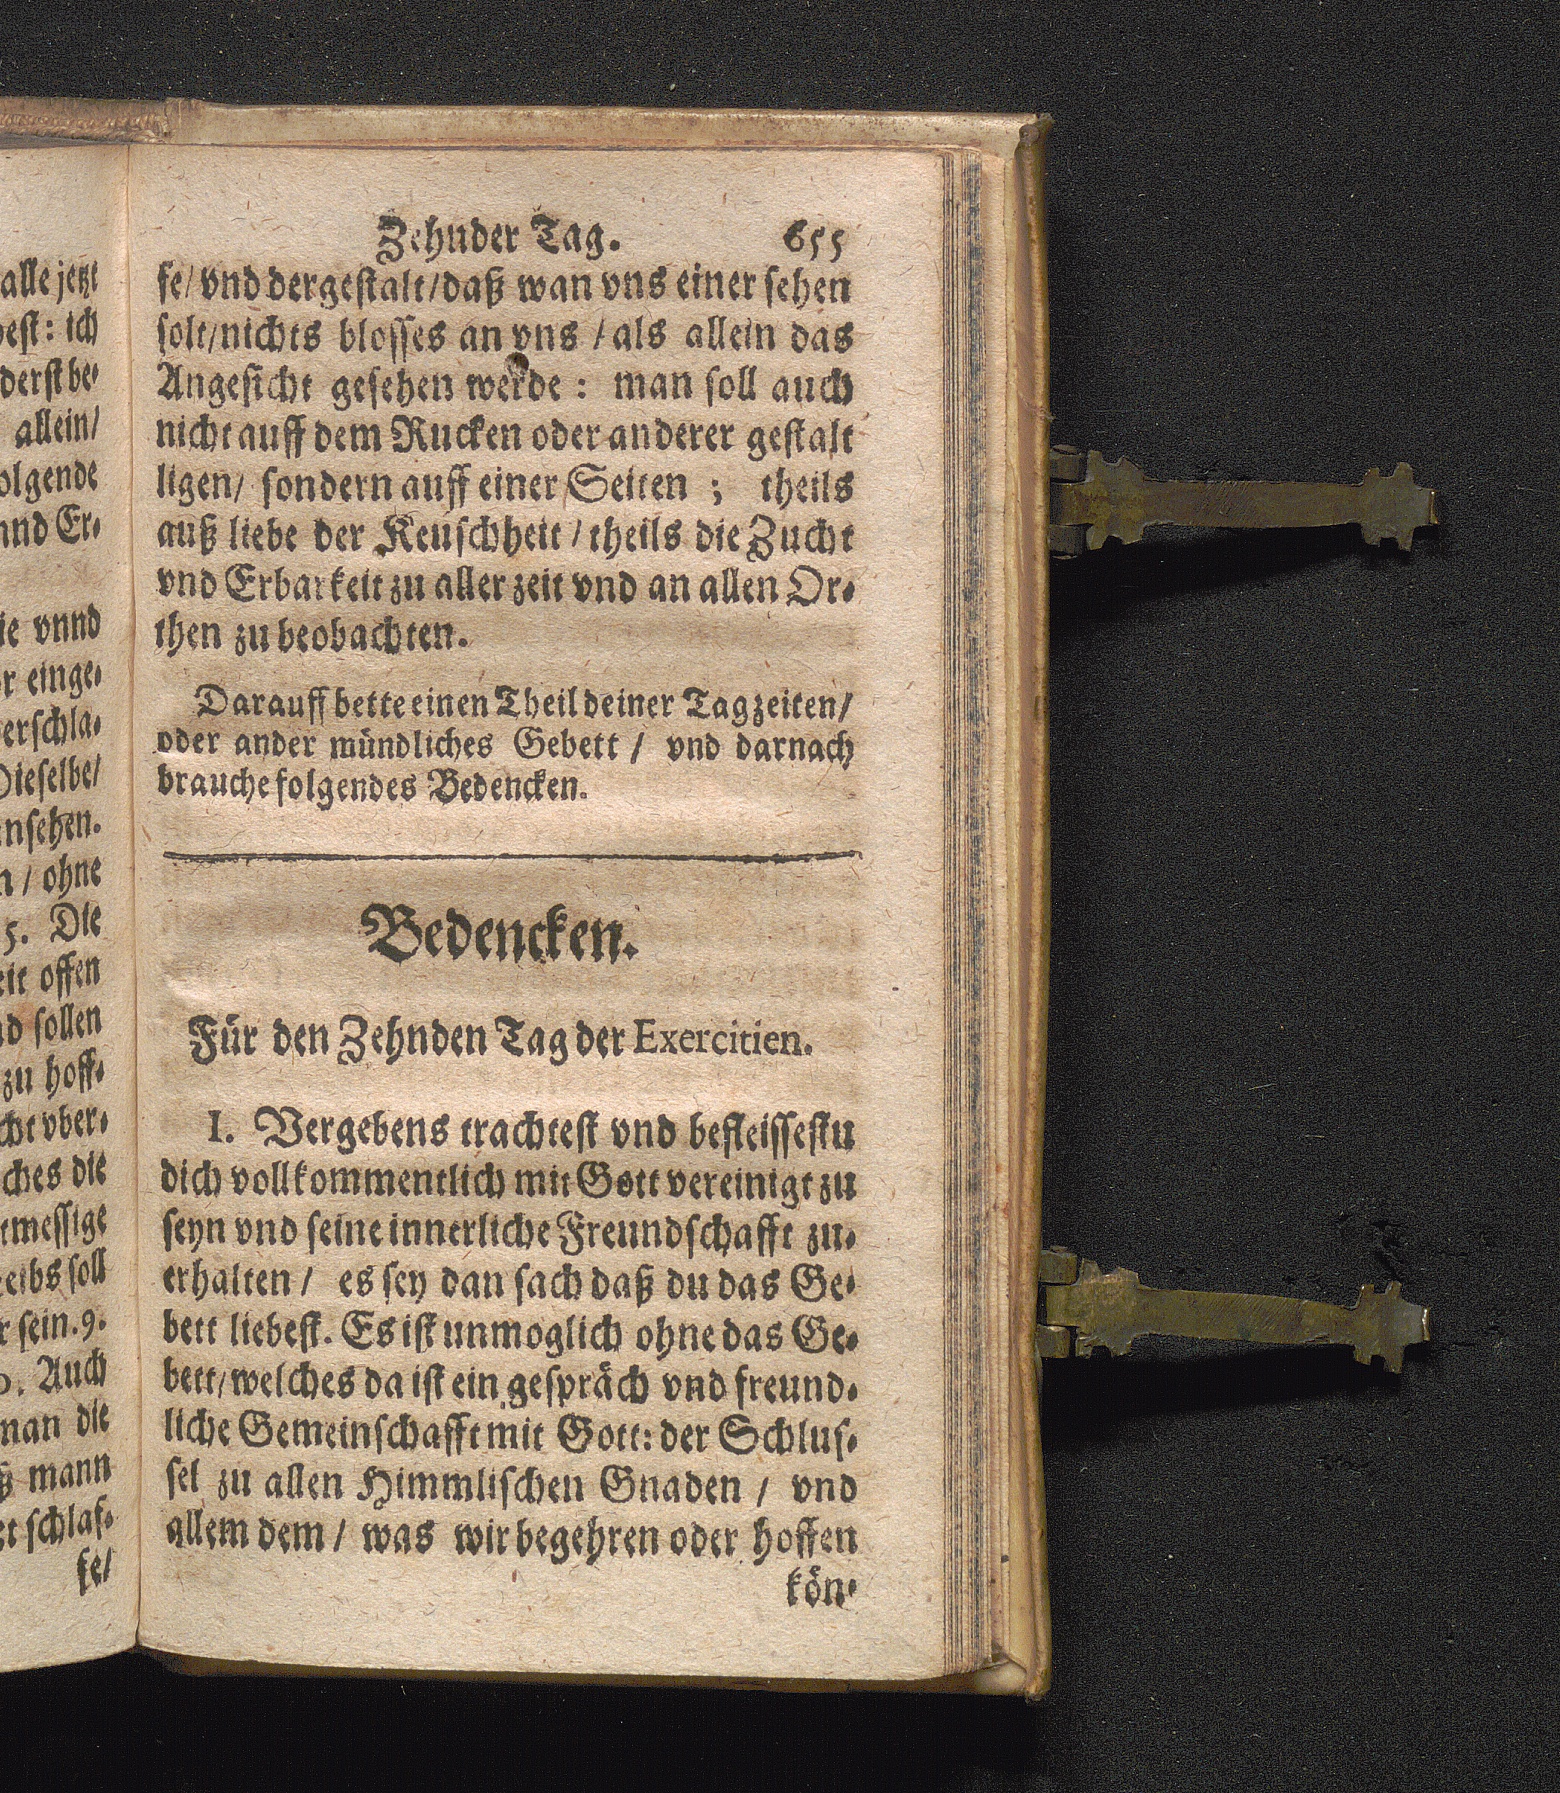 Zehnder Tag. 655
fe/ vnd dergestalt/daß wan vns einer sehen
solt/nichts blosses an vns / als allein das
Angesicht gesehen werde : man soll auch
nicht auff dem Rucken oder anderer gestalt
ligen/ sondern auff einer Seiten ; theils
auß liebe der Keuschheit / theils die Zucht
vnd Erbarkeit zu aller zeit vnd an allen Or-
then zu beobachten.
Darauff bette einen Theil deiner Tagzeiten/
oder ander mündliches Gebett / vnd darnach
brauche folgendes Bedencken.
Bedencken.
Für den Zehnden Tag der Exercitien.
I. Vergebens trachtest vnd befleissestu
dich vollkommentlich mit Gott vereinigt zu
seyn vnd seine innerliche Freundschafft zu-
erhalten / es sey dan sach daß du das Ge-
bett liebest. Es ist unmoglich ohne das Ge-
bett/welches da ist ein gespräch vnd freund-
liche Gemeinschafft mit Gott: der Schlus-
sel zu allen Himmlischen Gnaden / vnd
allem dem / was wir begehren oder hoffen
kön-
alle jetzt
: ich
allein/
vnnd
/ ohne
5. Die
offen
sollen
zu hoff-
die
soll
sein. 9.
Auch
die
mann
schlaf-
fe/